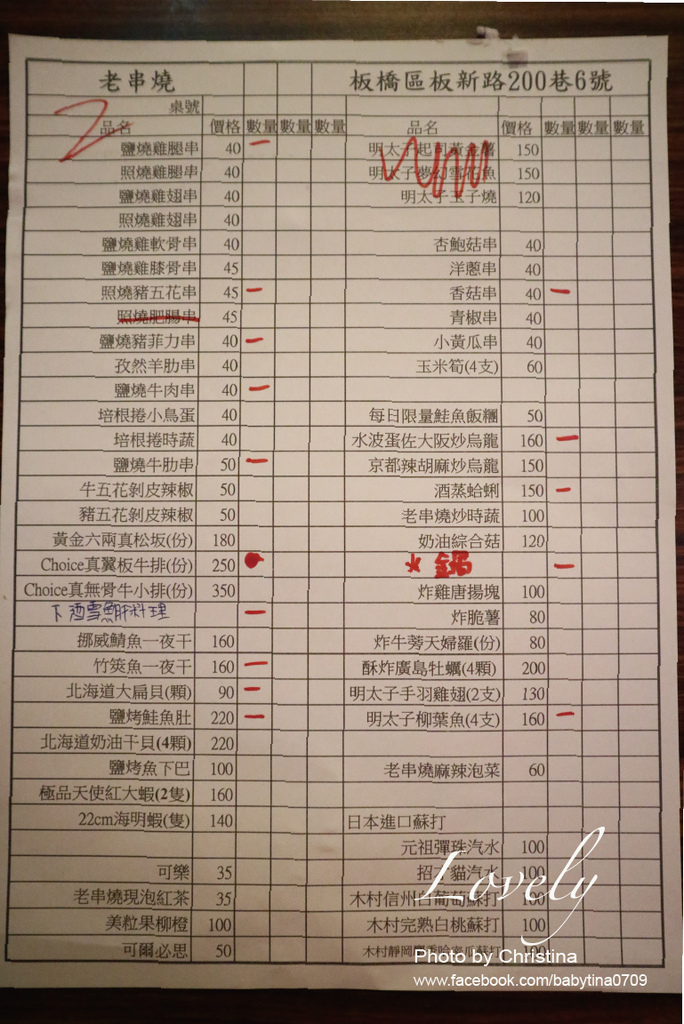 老串燒
板橋區板新路200巷6號
桌號
2
品名 價格 數量 數量 數量
鹽燒雞腿串 40 一
照燒雞腿串 40
鹽燒雞翅串 40
照燒雞翅串 40
鹽燒雞軟骨串 40
鹽燒雞膝骨串 45
照燒豬五花串 45 一
照燒肥腸串 45
鹽燒豬菲力串 40 一
孜然羊肋串 40
鹽燒牛肉串 40 一
培根捲小鳥蛋 40
培根捲時蔬 40
鹽燒牛肋串 50 一
牛五花剝皮辣椒 50
豬五花剝皮辣椒 50
黃金六兩真松坂(份) 180
Choice真翼板牛排(份) 250
Choice真無骨牛小排(份) 350
下酒雪魚肝料理 一
挪威鯖魚一夜干 160
竹筴魚一夜干 160 一
北海道大扁貝(顆) 90 一
鹽烤鮭魚肚 220 一
北海道奶油干貝(4顆) 220
鹽烤魚下巴 100
極品天使紅大蝦(2隻) 160
22cm海明蝦(隻) 140
可樂 35
老串燒現泡紅茶 35
美粒果柳橙 100
可爾必思 50
品名 價格 數量 數量 數量
明太子起司黃金薯 150
明太子夢幻雪花魚 150
明太子玉子燒 120
杏鮑菇串 40
洋蔥串 40
香菇串 40 一
青椒串 40
小黃瓜串 40
玉米筍(4支) 60
每日限量鮭魚飯糰 50
水波蛋佐大阪炒烏龍 160 一
京都辣胡麻炒烏龍 150
酒蒸蛤蜊 150 一
老串燒炒時蔬 100
奶油綜合菇 120
水 一
炸雞唐揚塊 100
炸脆薯 80
炸牛蒡天婦羅(份) 80
酥炸廣島牡蠣(4顆) 200
明太子手羽雞翅(2支) 130
明太子柳葉魚(4支) 160 一
老串燒麻辣泡菜 60
日本進口蘇打
元祖彈珠汽水 100
招 貓汽水 100
木村信州白葡萄蘇打 100
木村完熟白桃蘇打 100
木村靜岡 哈密瓜蘇打 100
Lovely
Photo by Christina
www.facebook.com/babytina0709